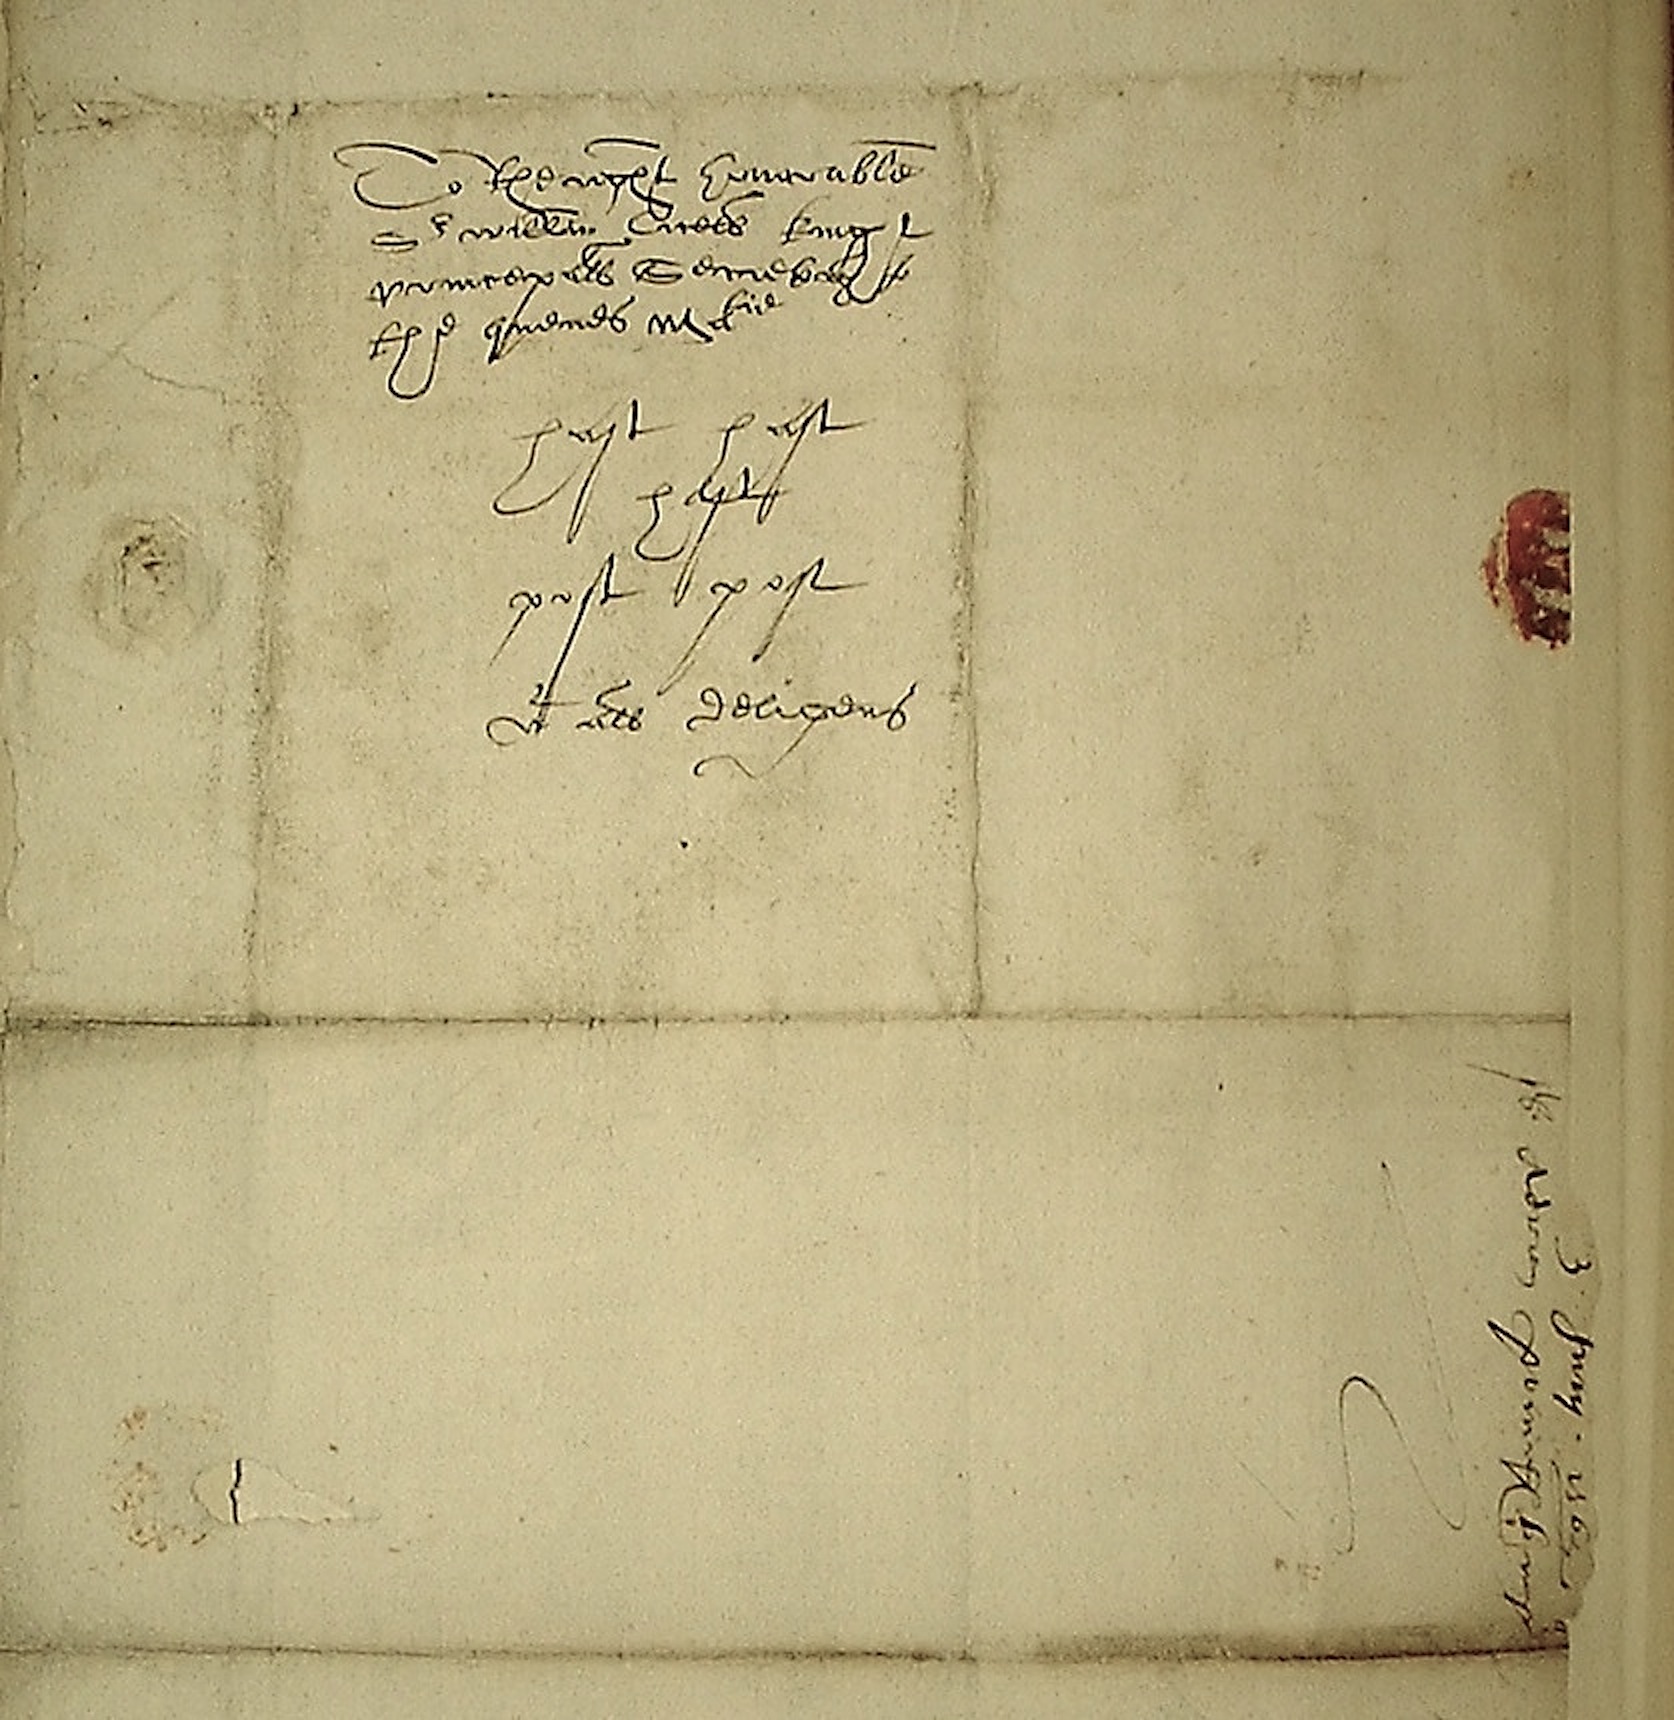 To the right honorable
Sr willm Cicell knight
princepall Secretary to
the quenes Matie
hast hast
hast
post post
wt all deligens
3 July . 1562